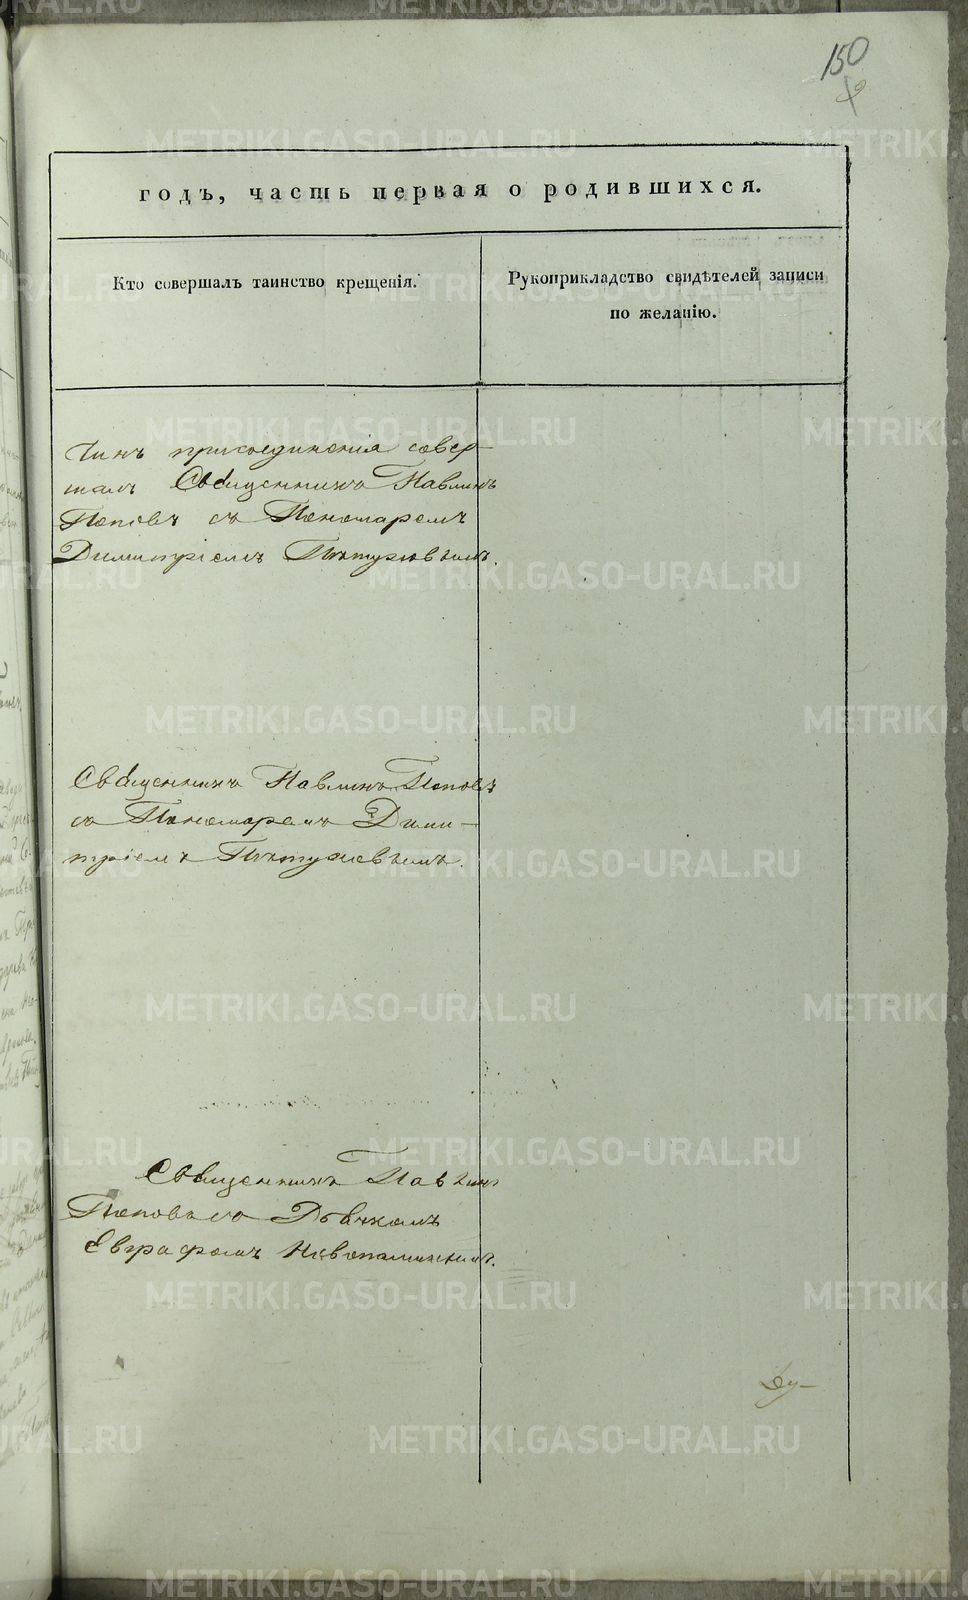 150
годъ, часть первая о родившихся.
Кто совершалъ таинство крещенія.
Рукоприкладство свидѣтелей записи
по желанію.
Чинъ присоединенія совер-
шалъ Священникъ Павлинъ
Поповъ съ Пономаремъ
Димитріемъ Пѣтуховымъ.
Священникъ Павлинъ Поповъ
съ Пономаремъ Дими-
тріемъ Пѣтуховымъ.
Священникъ Павлинъ
Поповъ съ Дьячкомъ
Евграфомъ Новопашинымъ.
METRIKI.GASO-URAL.RU